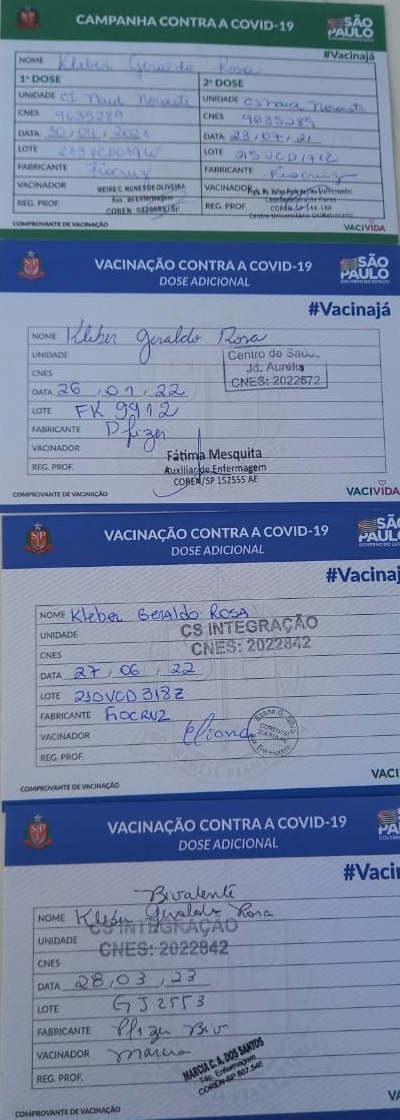 CAMPANHA CONTRA A COVID-19
SÃO PAULO
#Vacinajá
NOME Kleber Geraldo Rosa
1ª DOSE 2ª DOSE
UNIDADE UNIDADE
CNES 9635289 CNES 9635289
DATA 30/04/2021 DATA 23/07/21
LOTE LOTE
FABRICANTE Fiocruz FABRICANTE Fiocruz
VACINADOR NEIRE C. NUNES DE OLIVEIRA VACINADOR
REG. PROF. Aux. de Enfermagem REG. PROF.
COMPROVANTE DE VACINAÇÃO VACIVIDA
VACINAÇÃO CONTRA A COVID-19
DOSE ADICIONAL
SÃO PAULO
GOVERNO DO ESTADO
#Vacinajá
NOME Kleber Geraldo Rosa
UNIDADE Centro de
Jd. Aurélia
CNES CNES: 2022672
DATA 26/01/22
LOTE FK 9912
FABRICANTE Pfizer
VACINADOR Fátima Mesquita
REG. PROF. Auxiliar de Enfermagem
COREN/SP 152555 AE
COMPROVANTE DE VACINAÇÃO VACIVIDA
VACINAÇÃO CONTRA A COVID-19
DOSE ADICIONAL
SÃO PAUL
#Vacinaj
NOME Kleber Geraldo ROSA
UNIDADE CS INTEGRAÇÃO
CNES CNES: 2022842
DATA 27/06/22
LOTE 210VCD318Z
FABRICANTE FIOCRUZ
VACINADOR Eliana
REG. PROF.
COMPROVANTE DE VACINAÇÃO VACI
VACINAÇÃO CONTRA A COVID-19
DOSE ADICIONAL
#Vaci
Bivalente
NOME Kleber Geraldo Rosa
UNIDADE CS INTEGRAÇÃO
CNES CNES: 2022842
DATA 28/03/23
LOTE GJ2553
FABRICANTE Pfizer Biv
VACINADOR Marcia
REG. PROF. MARCIA C. A. DOS SANTOS
Téc. Enfermagem
COREN-SP 507.546
COMPROVANTE DE VACINAÇÃO VA